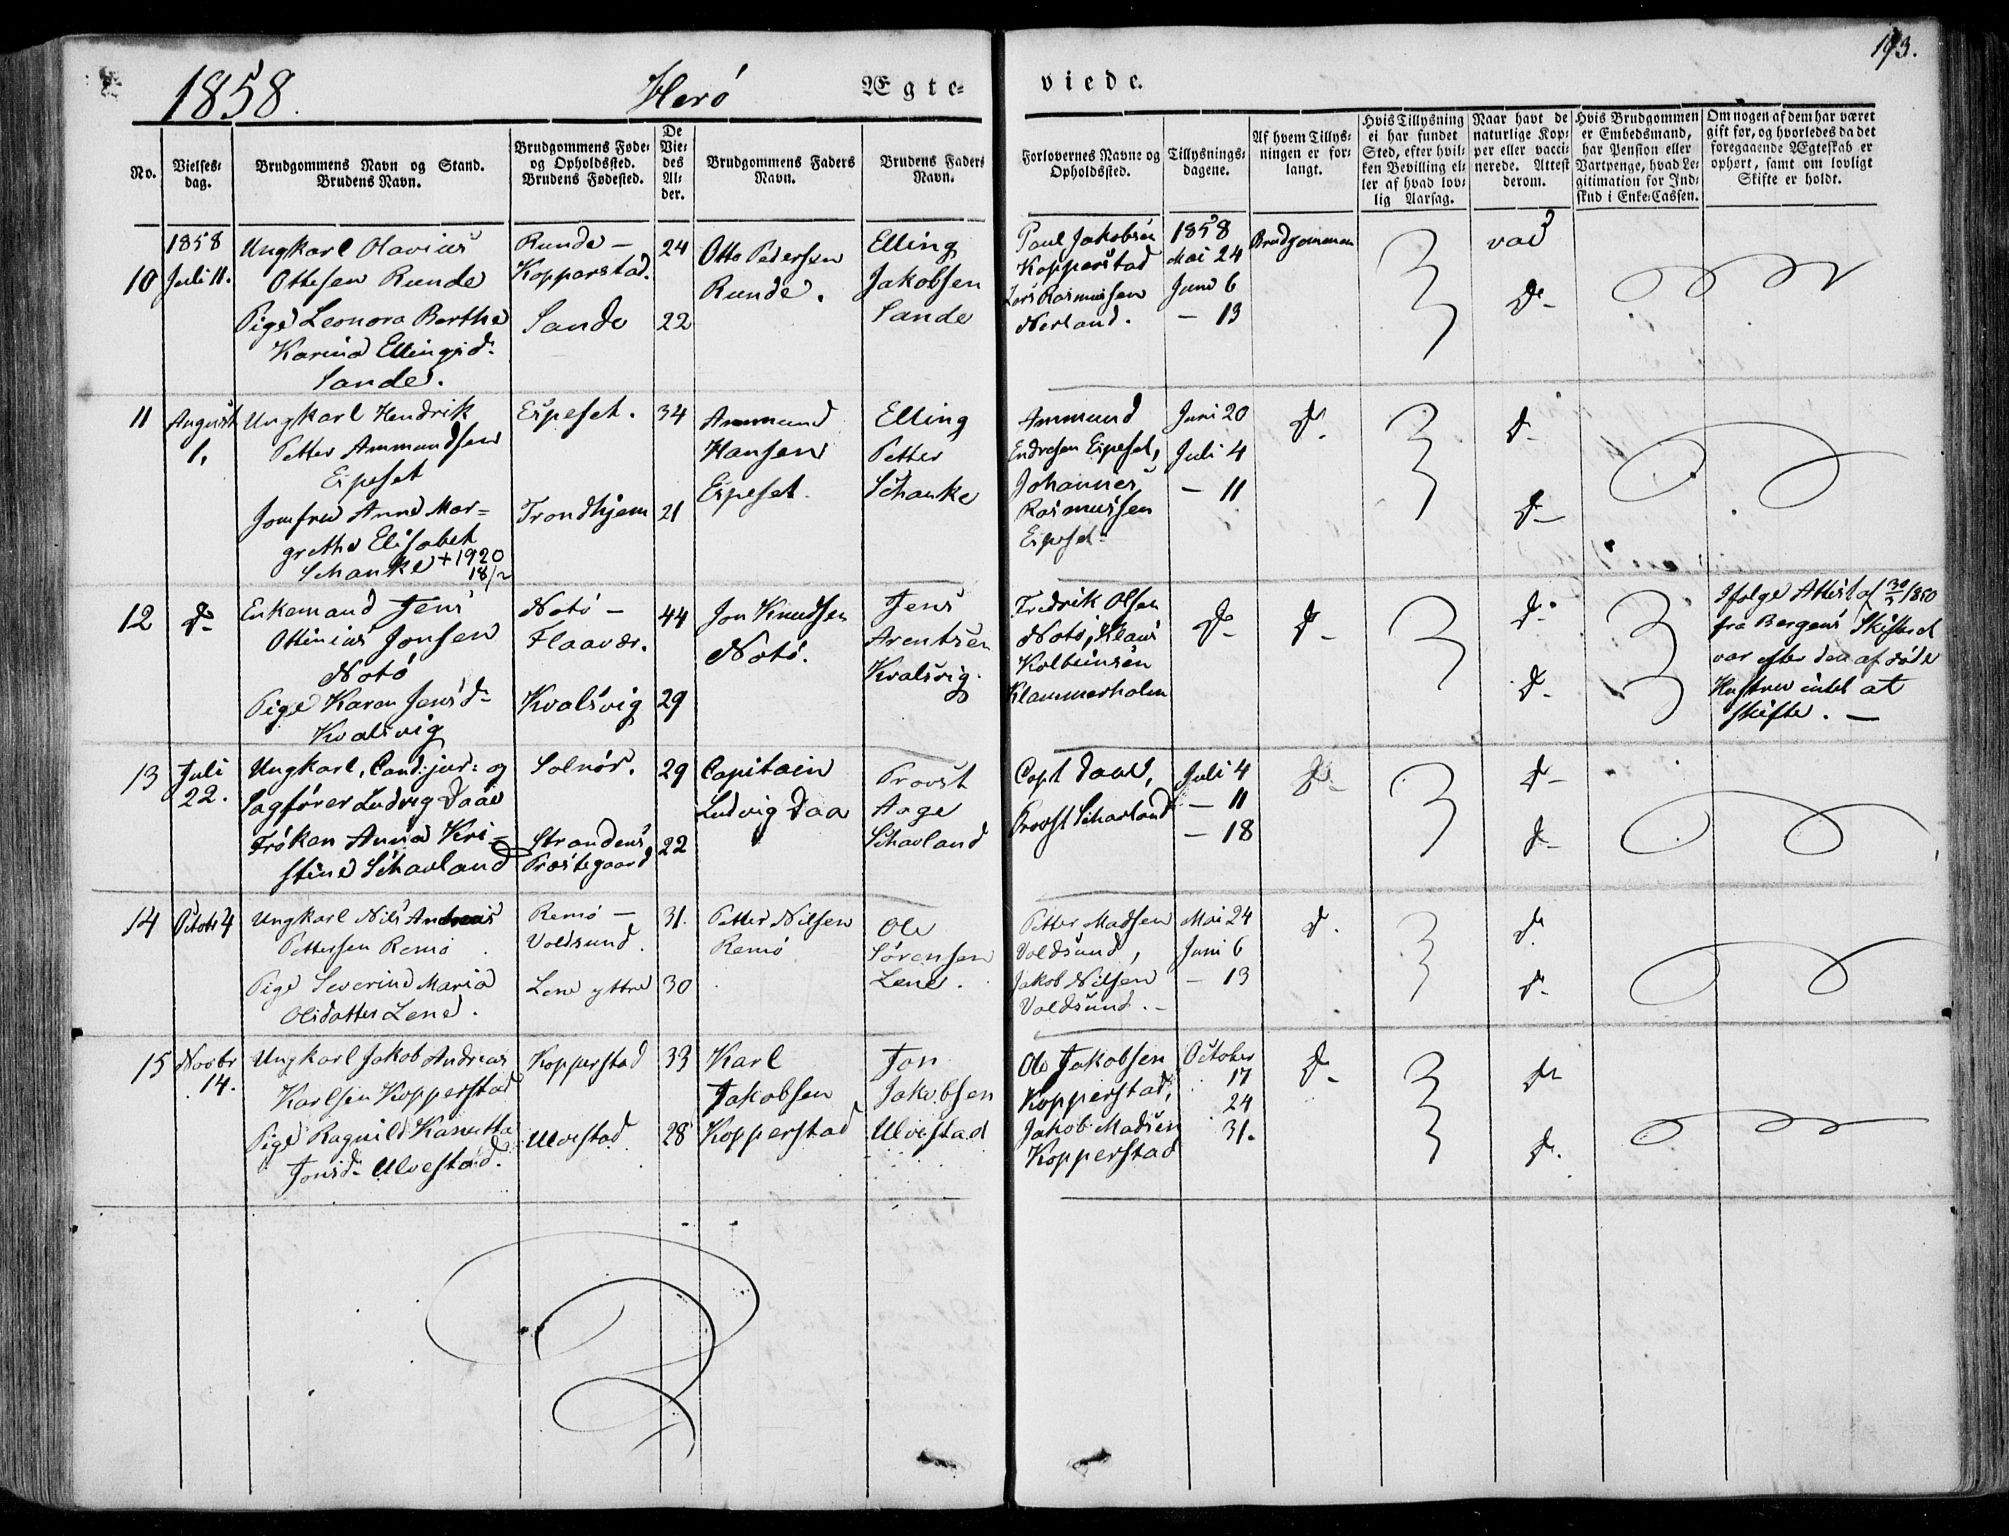 193.
1858.
Herö
Ægte-
viede.
No.
Vielses-
dag.
Brudgommens Navn og Stand.
Brudens Navn.
Brudgommens Føde-
og Opholdssted.
Brudens Fødested.
De
Vie-
des
Al-
der.
Brudgommens Faders
Navn.
Brudens Faders
Navn.
Forlovernes Navne og
Opholdssted.
Tillysnings-
dagene.
Af hvem Tillys-
ningen er for-
langt.
Hvis Tillysning
ei har fundet
Sted, efter hvil-
ken Bevilling el-
ler af hvad lov-
lig Aarsag.
Naar havt de
naturlige Kop-
per eller vacci-
nerede. Attest
derom.
Hvis Brudgommen
er Embedsmand,
har Pension eller
Vartpenge, hvad Le-
gitimation for Ind-
skud i Enke-Cassen.
Om nogen af dem har været
gift før, og hvorledes da det
foregaaende Ægteskab er
ophørt, samt om lovligt
Skifte er holdt.
10
1858
Juli 11.
Ungkarl Olavius
Ottesen Runde
Pige Leonora Berthe
Karina Ellingsd.
Sande.
Runde -
Kopperstad.
Sande
24
22
Otto Pedersen
Runde.
Elling
Jakobsen
Sande
Paul Jakobsen
Kopperstad
Lars Rasmussen
Nerland.
1858
Mai 24
Juni 6
- 13
Brudgommen
vac
D-
11
August
1.
Ungkarl Hendrik
Petter Ammundsen
Eipeset
Jomfru Anne Mar-
grethe Elisabet
Schanke +1920
18/2
Eipeset.
Trondhjem
34
21
Ammund
Hansen
Eipeset.
Elling
Petter
Schanke
Ammund
Endresen Eipeset,
Johannes
Rasmussen
Eipeset
Juni 20
Juli 4
- 11
D-
D-
D-
12
D-
Enkemand Jens
Ottinius Jonsen
Notö
Pige Karen Jensd-
Kvalsvig
Notö -
Flaavær.
Kvalsvig
44
29
Jon Knudsen
Notö.
Jens
Arentsen
Kvalsvig.
Fredrik Olsen
Notö, Klaus
Kolbeinsen
Klammerholm
D-
D-
D-
D-
Ifølge Attest af 30/5 1850
fra Bergens Skifteret
var efter den afdøde
Hustru intet at
skifte. -
13
Juli
22.
Ungkarl, Cand: jur: og
Sagfører Ludvig Daae
Frøken Anna Kri-
stine Schavland
Solnör.
Strandens
Præstegaard
29
22
Capitain
Ludvig Daa
Provst
Aage
Schavland
Capt Daae,
Provst Schavland
Juli 4
- 11
- 18
D-
D-
D-
14
Octobr 4
Ungkarl Nils Andreas
Pettersen Remö
Pige Severine Maria
Olsdatter Lene.
Remö -
Voldsund.
Lene yttre
31.
30
Petter Nilsen
Remö
Ole
Sörensen
Lene.
Petter Madsen
Voldsund,
Jakob Nilsen
Voldsund. -
Mai 24
Juni 6
- 13
D.
D.
D-
15
Novbr
14.
Ungkarl Jakob Andreas
Karlsen Kopperstad
Pige Ragnild Kanutta
Jonsd- Ulvestad.
Kopperstad
Ulvestad
33
28
Karl
Jakobsen
Kopperstad
Jon
Jakobsen
Ulvestad
Ole Jakobsen
Kopperstad,
Jakob Madsen
Kopperstad
October
17
24
31.
D-
D-
D-